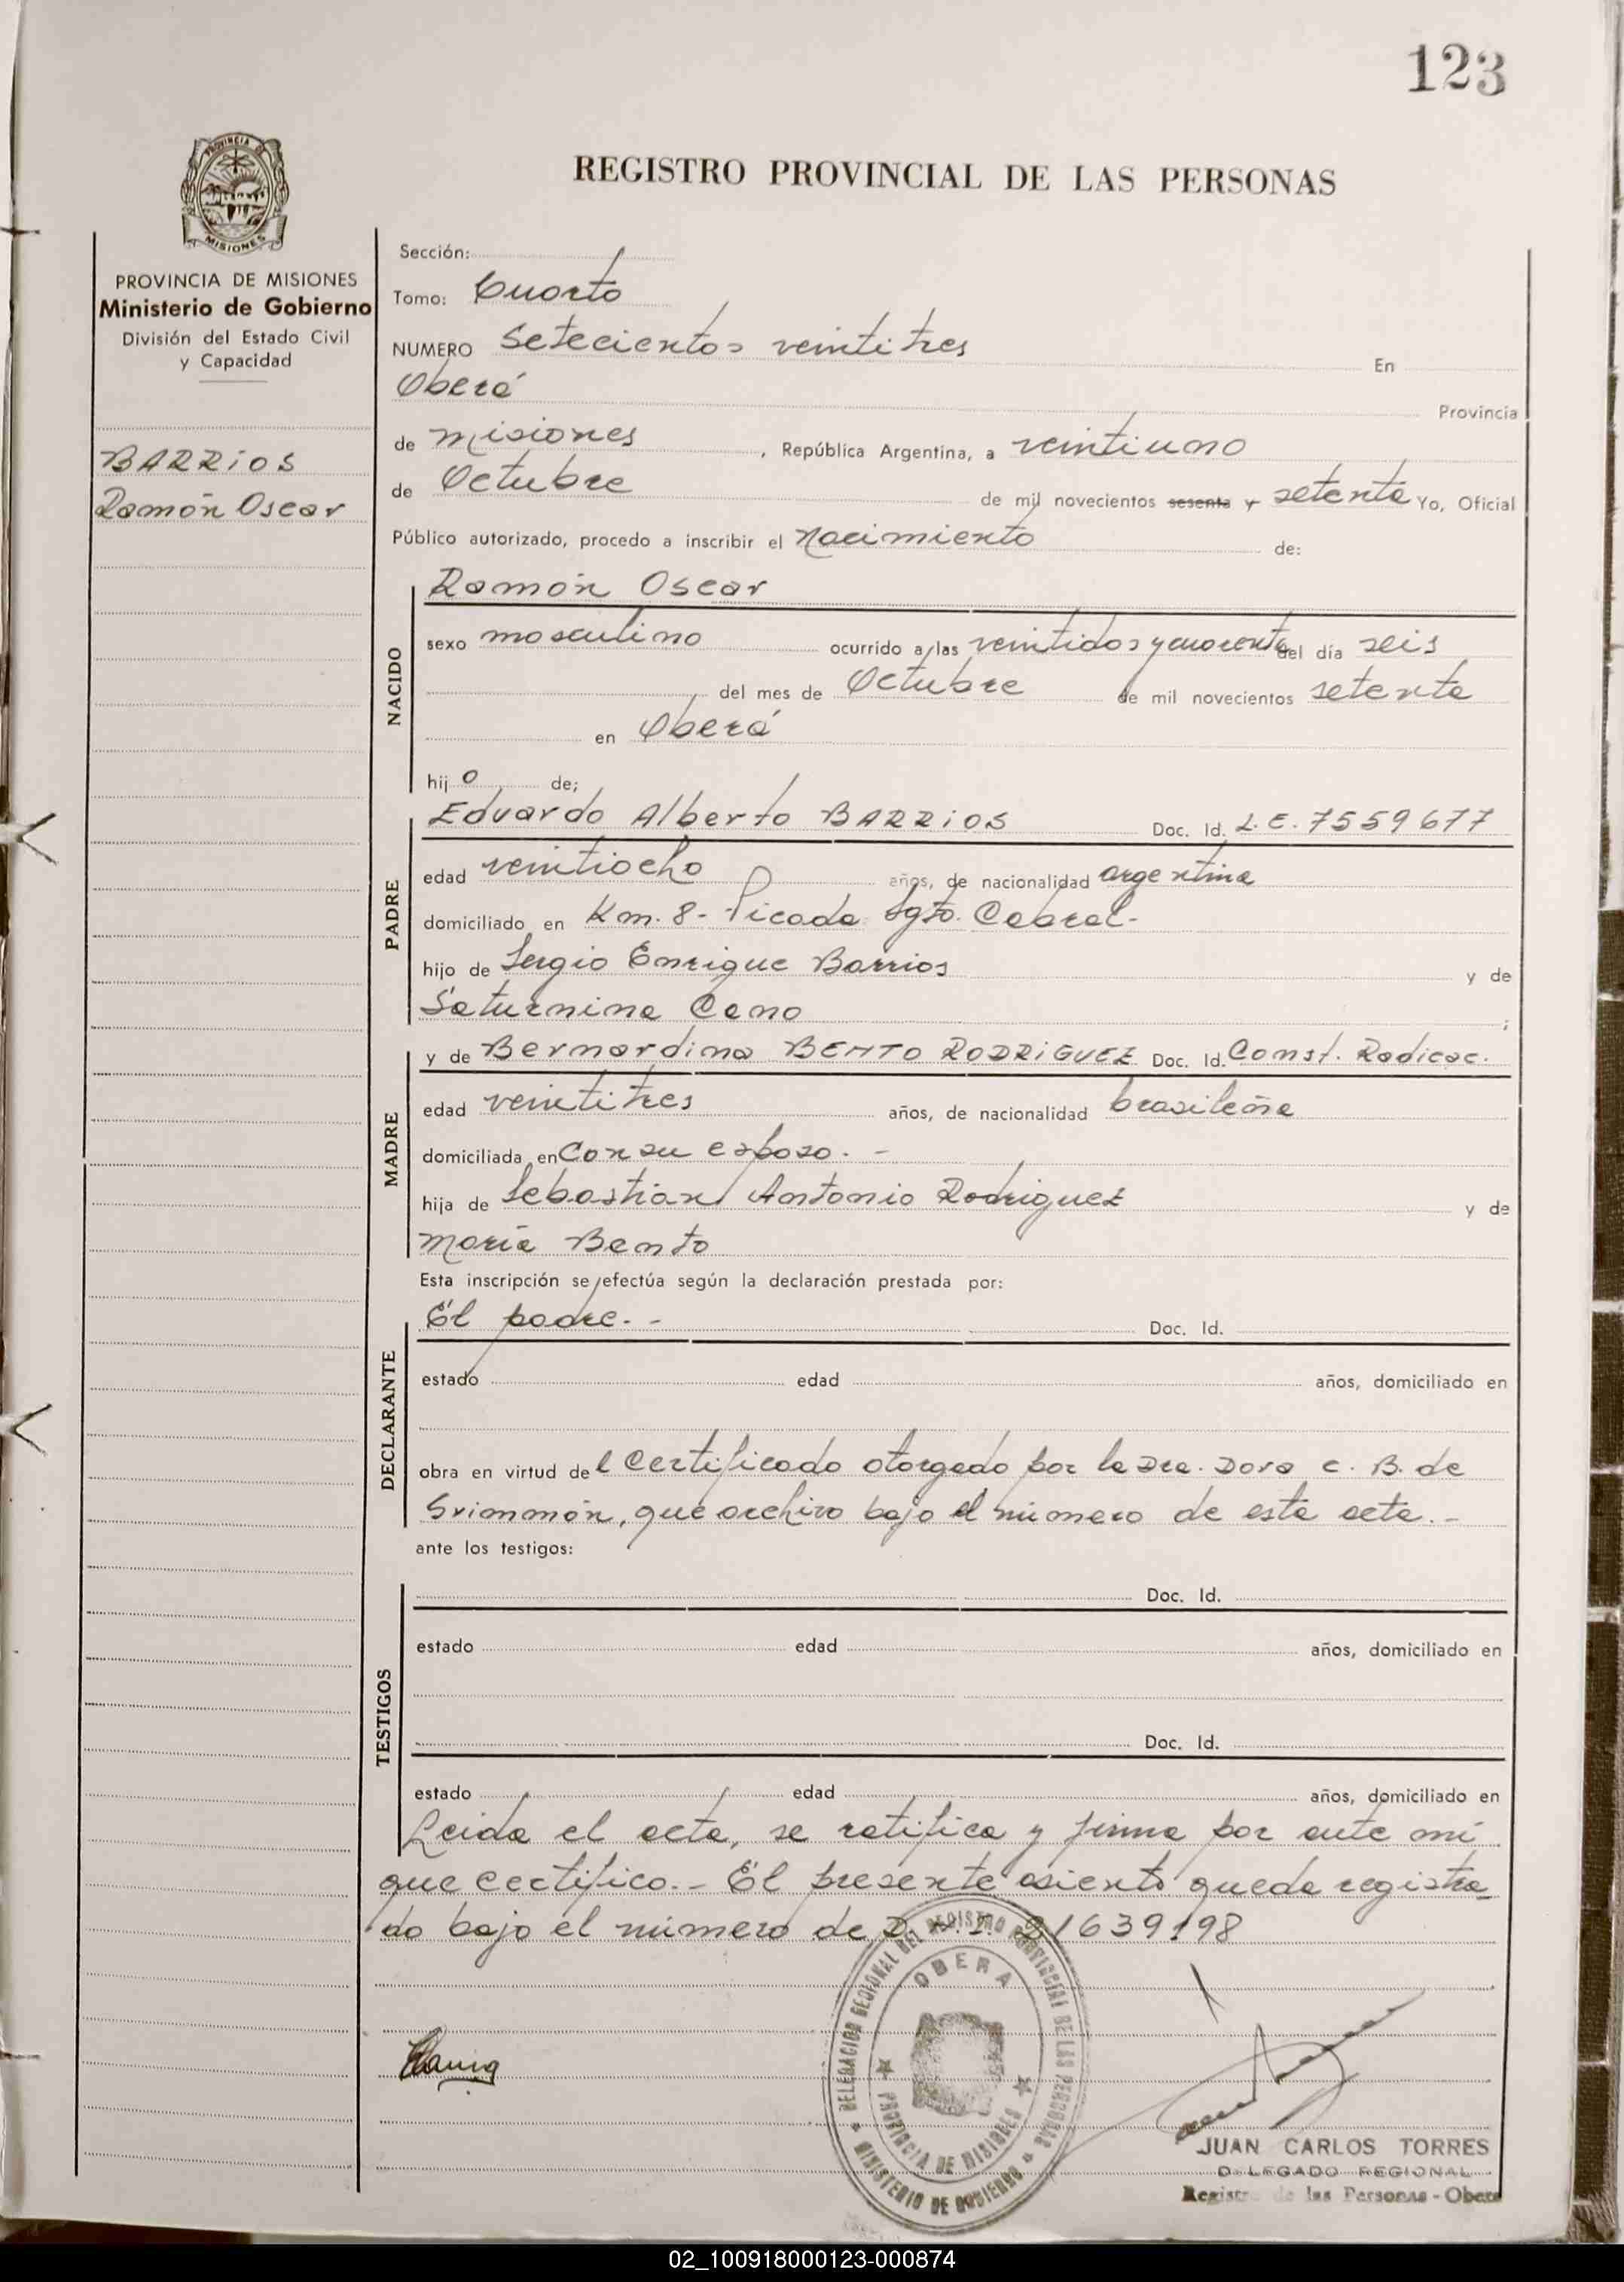 123
PROVINCIA DE
MISIONES
REGISTRO PROVINCIAL DE LAS PERSONAS
PROVINCIA DE MISIONES
Ministerio de Gobierno
División del Estado Civil
y Capacidad
BARRIOS
Ramón Oscar
Sección:
Tomo: Cuarto
NUMERO Setecientos veintitres En
Oberá Provincia
de Misiones, República Argentina, a veintiuno
de Octubre de mil novecientos sesenta y setenta Yo, Oficial
Público autorizado, procedo a inscribir el Nacimiento de:
NACIDO
Ramón Oscar
sexo masculino ocurrido a las veintidos y cuarenta del día seis
del mes de Octubre de mil novecientos setenta
en Oberá
hijo de;
PADRE
Eduardo Alberto BARRIOS Doc. Id. L.E. 7559677
edad veintiocho años, de nacionalidad argentina
domiciliado en Km. 8- Picada Sgto. Cabral-
hijo de Sergio Enrique Barrios y de
Saturnina Cano ;
MADRE
y de Bernardina BENTO RODRIGUEZ Doc. Id. Const. Radicac.
edad veintitres años, de nacionalidad brasileña
domiciliada en con su esposo. -
hija de Sebastián Antonio Rodriguez y de
María Bento
Esta inscripción se efectúa según la declaración prestada por:
DECLARANTE
El padre. - Doc. Id.
estado edad años, domiciliado en
obra en virtud del certificado otorgado por la Dra. Dora C. B. de
que archivo bajo el número de esta acta. -
ante los testigos:
TESTIGOS
Doc. Id.
estado edad años, domiciliado en
Doc. Id.
estado edad años, domiciliado en
Leida el acta, se ratifica y firma por ante mí
que certifico. - El presente asiento queda registra
do bajo el número de D.N.I. 21639198
DELEGACION REGIONAL DEL REGISTRO PROVINCIAL DE LAS PERSONAS
OBERA
PROVINCIA DE MISIONES
MINISTERIO DE GOBIERNO
JUAN CARLOS TORRES
DELEGADO REGIONAL
Registro de las Personas - Obera
02_100918000123-000874